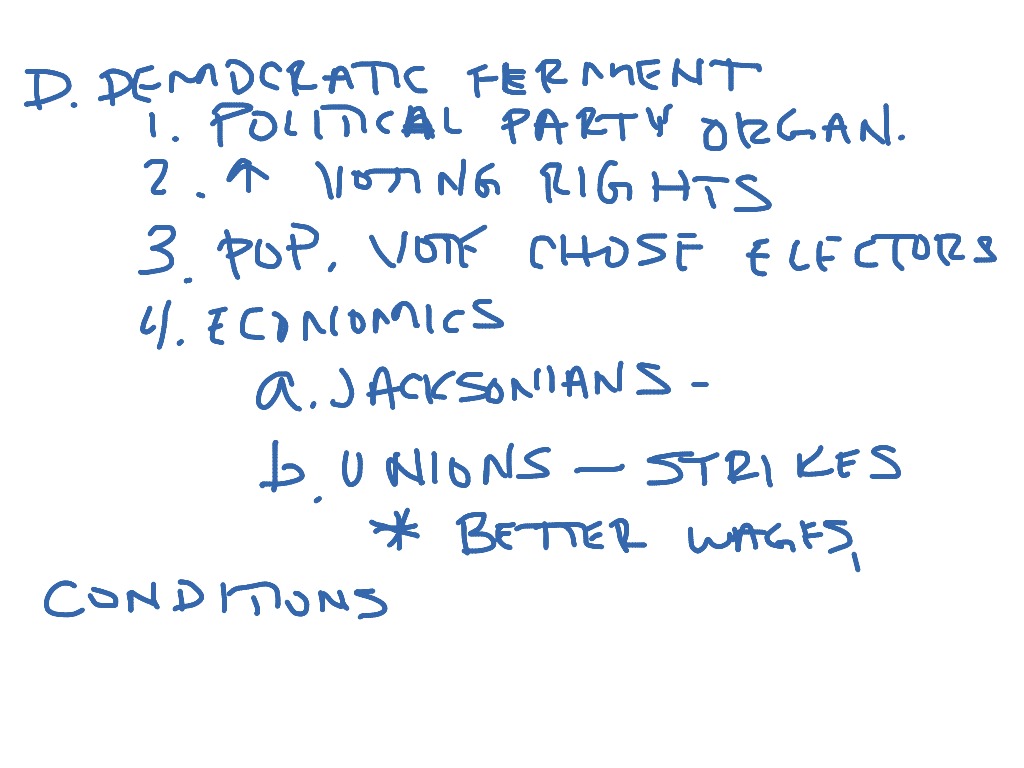 D. DEMOCRATIC FERMENT
1. POLITICAL PARTY ORGAN.
2. ↑ VOTING RIGHTS
3. POP. VOTE CHOSE ELECTORS
4. ECONOMICS
a. JACKSONIANS -
b. UNIONS — STRIKES
* BETTER WAGES,
CONDITIONS